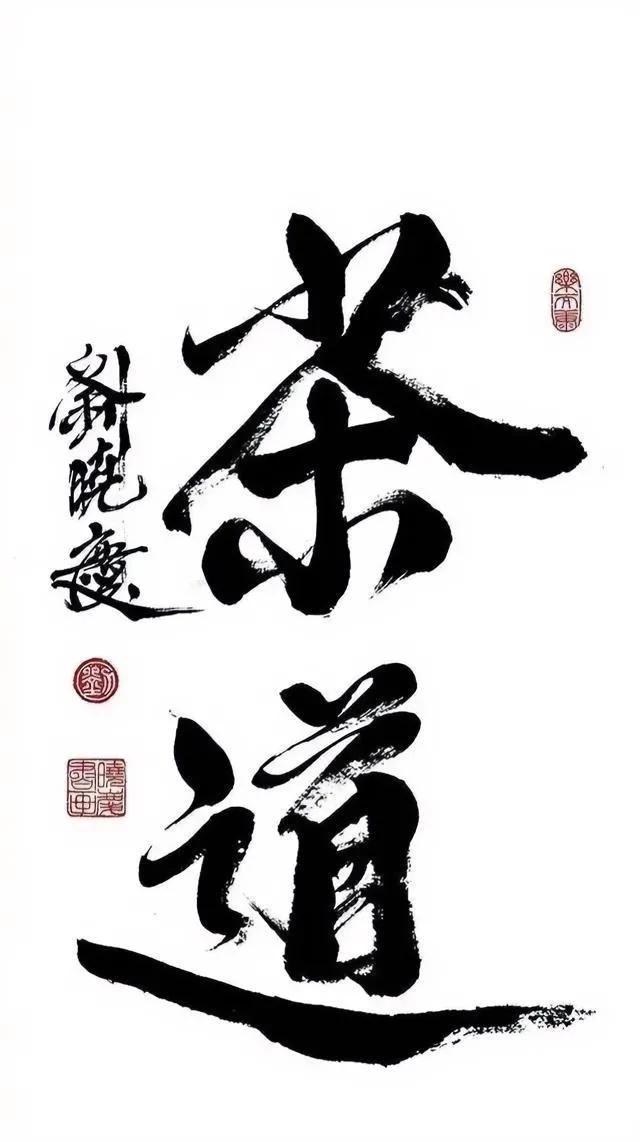 茶道
劉曉慶
劉
曉慶書画